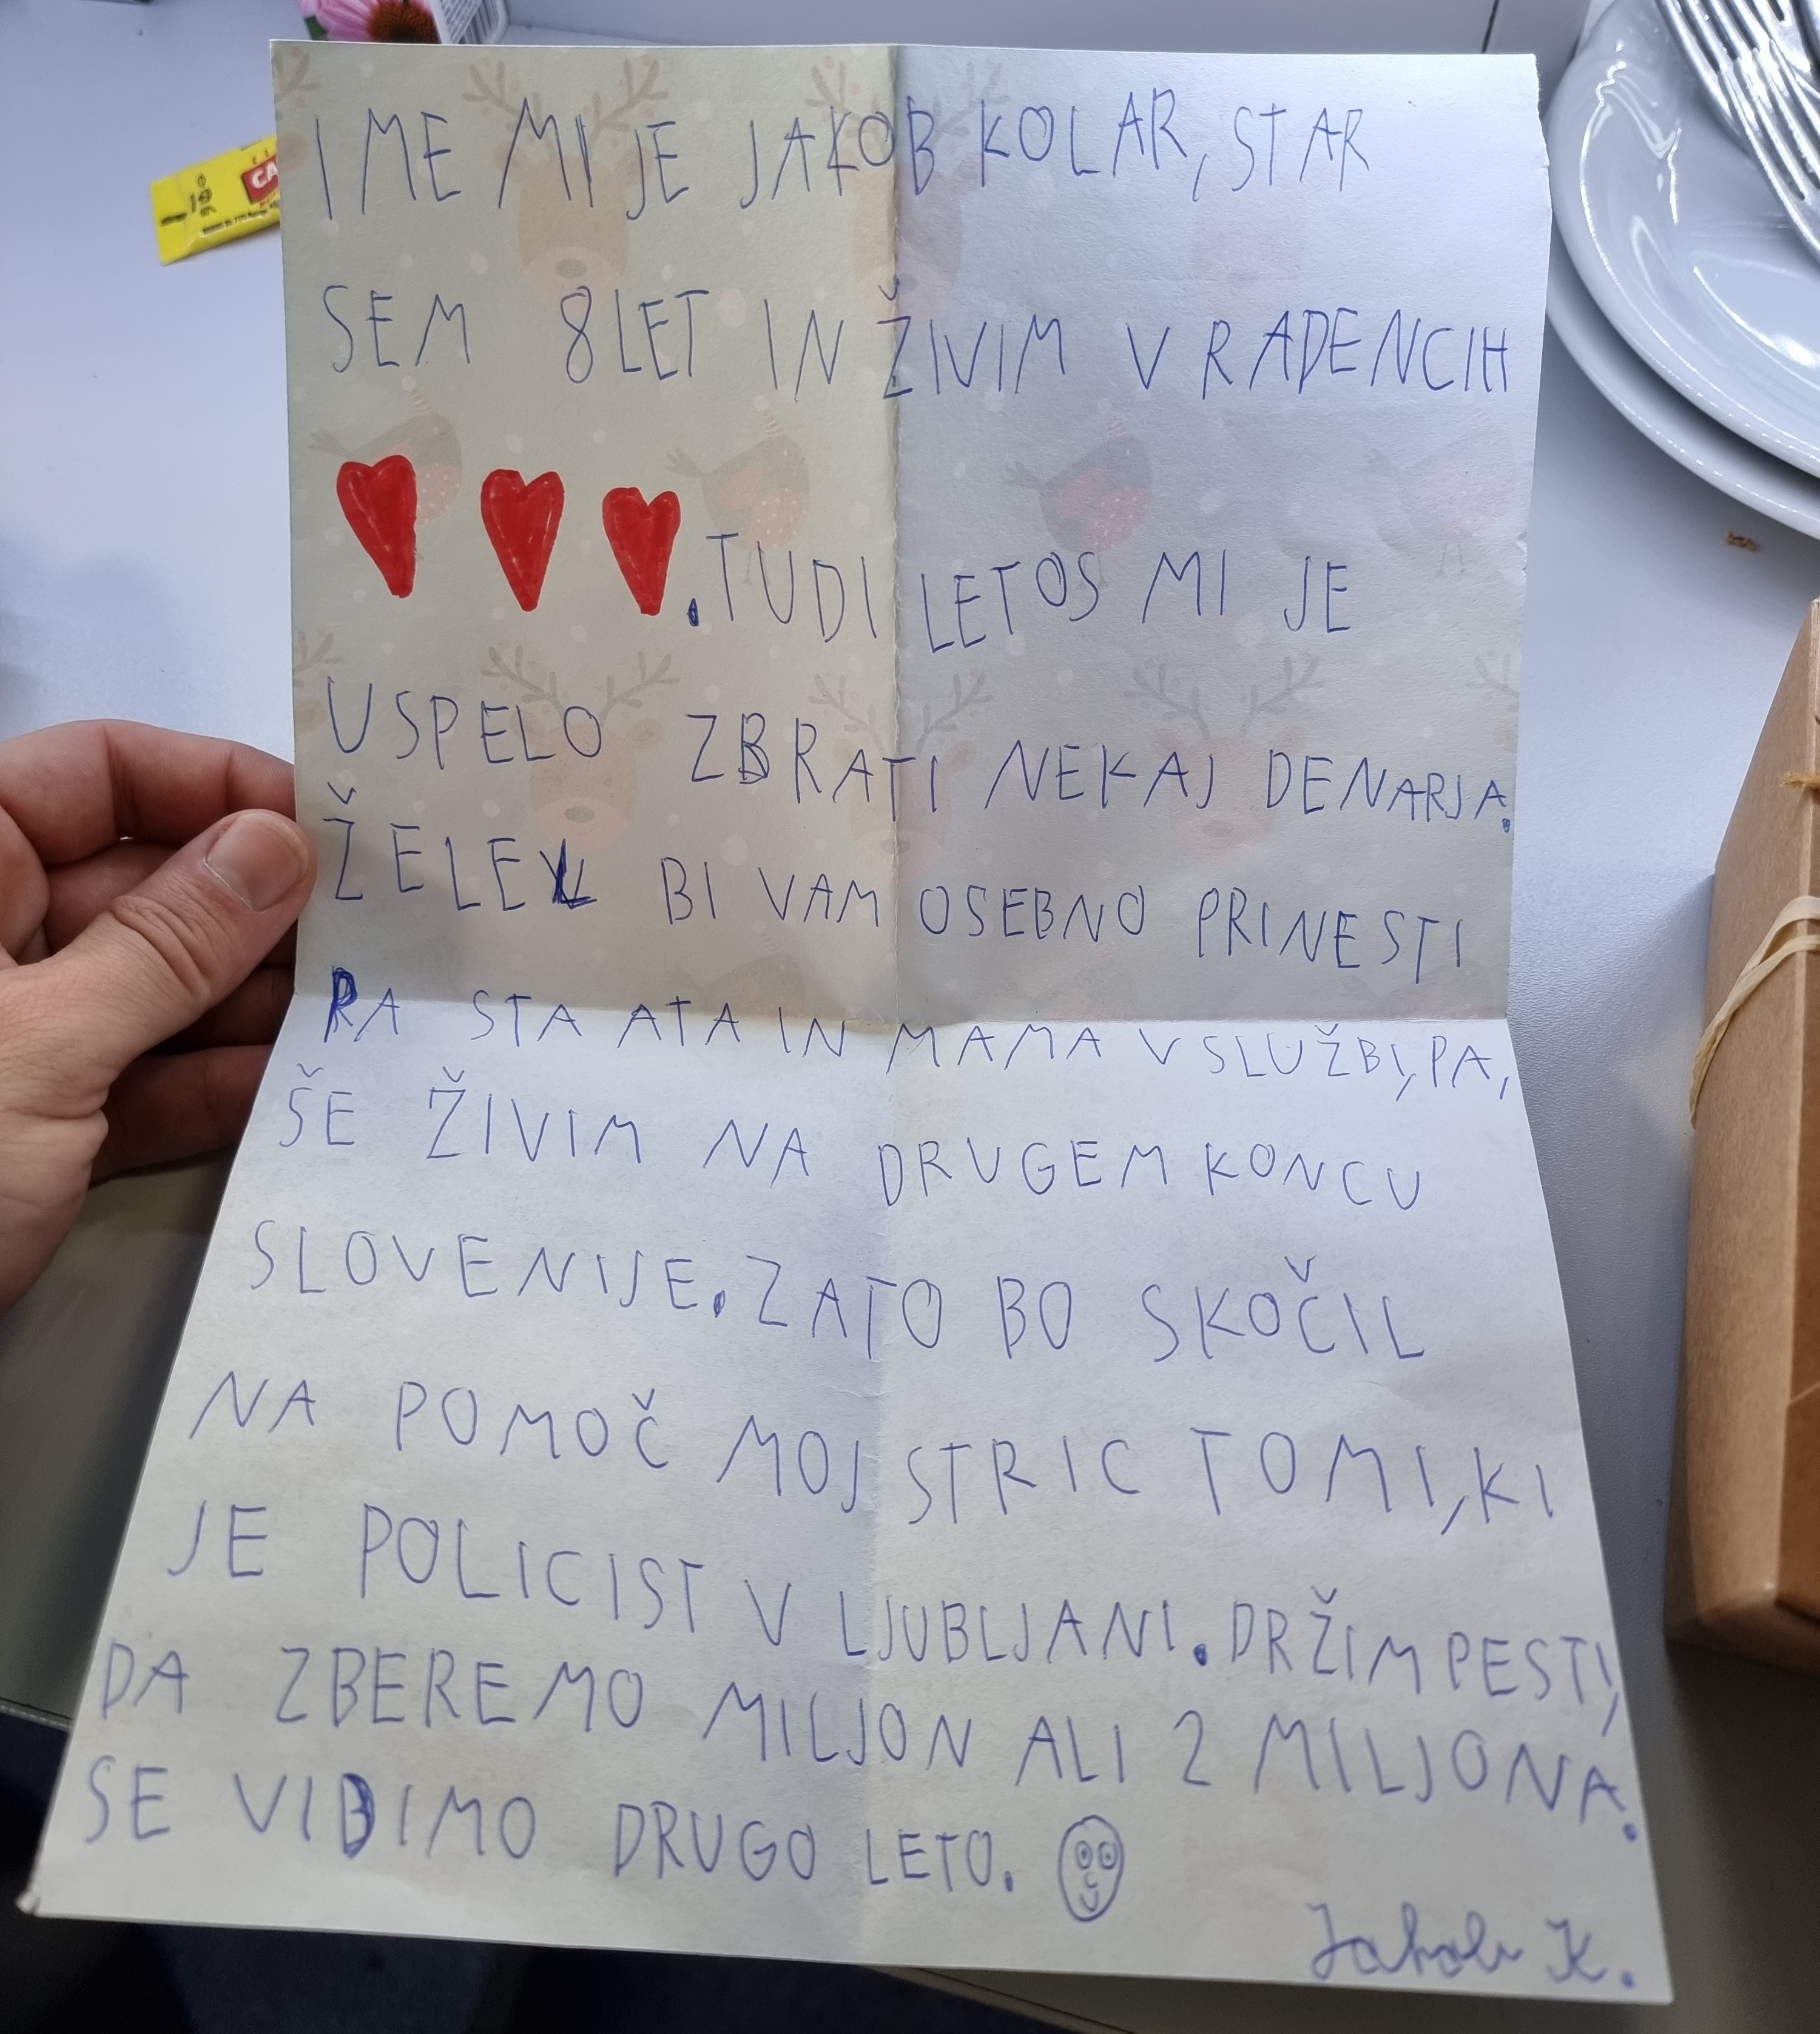 IME MI JE JAKOB KOLAR, STAR
SEM 8 LET IN ŽIVIM V RADENCIH
. TUDI LETOS MI JE
USPELO ZBRATI NEKAJ DENARJA.
ŽELEL BI VAM OSEBNO PRINESTI
PA STA ATA IN MAMA V SLUŽBI, PA,
ŠE ŽIVIM NA DRUGEM KONCU
SLOVENIJE. ZATO BO SKOČIL
NA POMOČ MOJ STRIC TOMI, KI
JE POLICIST V LJUBLJANI. DRŽIM PESTI,
DA ZBEREMO MILJON ALI 2 MILJONA.
SE VIDIMO DRUGO LETO.
Jakob K.